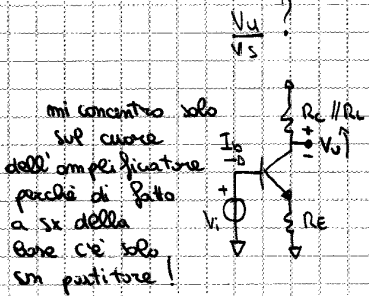 Vu
Vs
?
mi concentro solo
sul cuore
dell'amplificatore
perchè di fatto
a sx della
base c'è solo
un partitore!
Ib
+
Vi
Rc // RL
+
-
Vu
RE